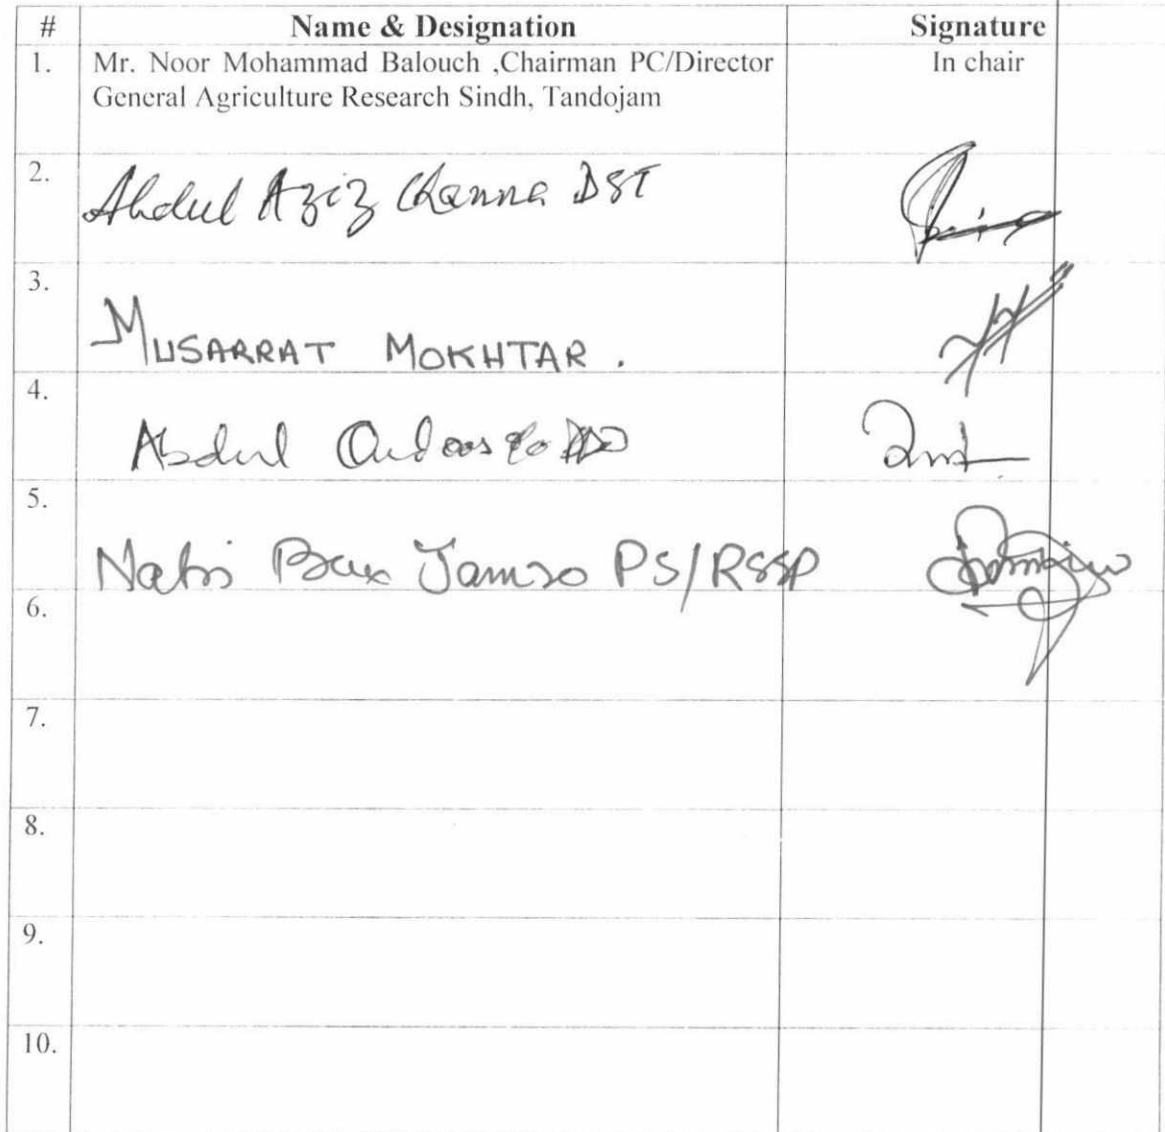 # Name & Designation Signature
1. Mr. Noor Mohammad Balouch ,Chairman PC/Director In chair
General Agriculture Research Sindh, Tandojam
2. Abdul Aziz Channa DST
3. MUSARRAT MOKHTAR.
4. Abdul
5. Nabi Bux Jamro PS/RSSP
6.
7.
8.
9.
10.